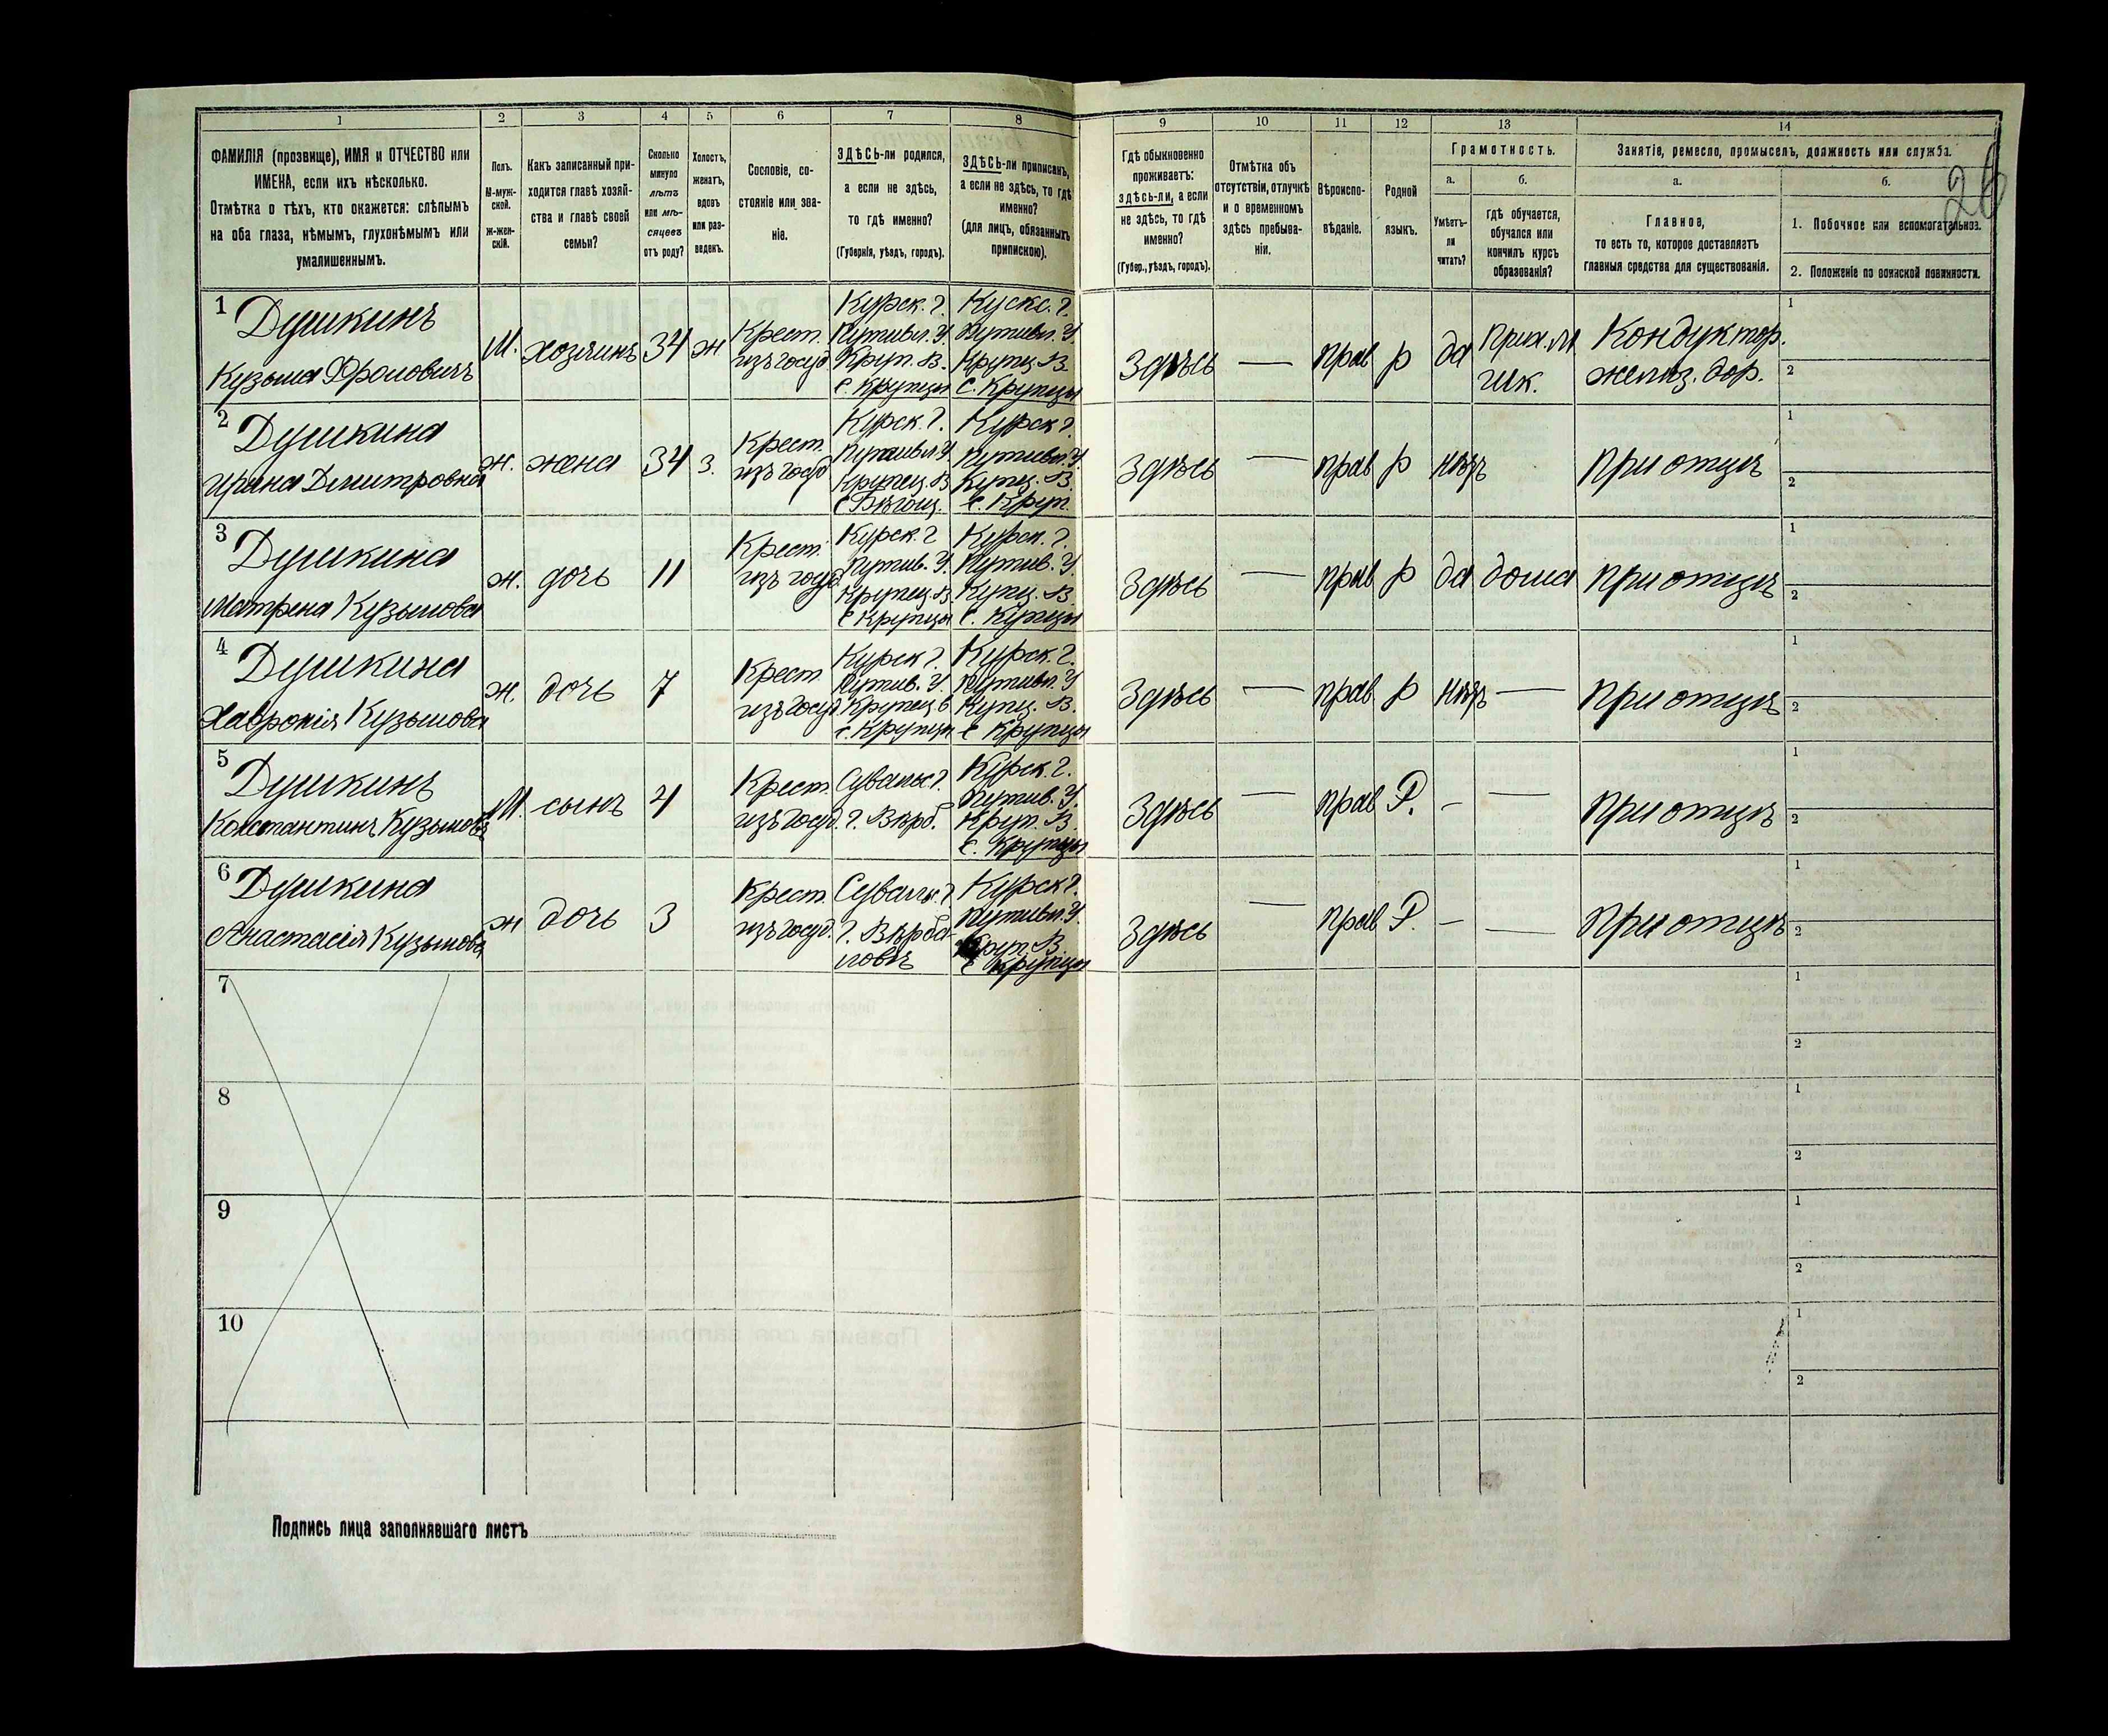 1 2 3 4 5 6 7 8 9 10 11 12 13 14
ФАМИЛІЯ (прозвище), ИМЯ и ОТЧЕСТВО или
ИМЕНА, если ихъ нѣсколько.
Отмѣтка о тѣхъ, кто окажется: слѣпымъ
на оба глаза, нѣмымъ, глухонѣмымъ или
умалишеннымъ.
Полъ.
М-муж-
ской.
Ж-жен-
скій.
Какъ записанный при-
ходится главѣ хозяй-
ства и главѣ своей
семьи?
Сколько
минуло
лѣтъ
или мѣ-
сяцевъ
отъ роду?
Холостъ,
женатъ,
вдовъ
или раз-
веденъ.
Сословіе, со-
стояніе или зва-
ніе.
ЗДѢСЬ-ли родился,
а если не здѣсь,
то гдѣ именно?
(Губернія, уѣздъ, городъ).
ЗДѢСЬ-ли приписанъ,
а если не здѣсь, то гдѣ
именно?
(для лицъ, обязанныхъ
припискою).
Гдѣ обыкновенно
проживаетъ:
здѣсь-ли, а если
не здѣсь, то гдѣ
именно?
(Губер., уѣздъ, городъ).
Отмѣтка объ
отсутствіи, отлучкѣ
и о временномъ
здѣсь пребыва-
ніи.
Вѣроиспо-
вѣданіе.
Родной
языкъ.
Грамотность.
а.
Умѣетъ-
ли
читать?
б.
гдѣ обучается,
обучался или
кончилъ курсъ
образованія?
Занятіе, ремесло, промыселъ, должность или служба.
а.
Главное,
то есть то, которое доставляетъ
главныя средства для существованія.
б.
1. Побочное или вспомогательное.
2. Положеніе по воинской повинности.
26
1
Душкинъ
Кузьма Фроловичъ
М.
хозяинъ
34
ж
Крест.
изъ госуд
Курск. г.
Путивл. У
Круп. В.
с. Крупцы
Кускс. г.
Путивл. У
Крупц. В.
С. Крупцы
Здѣсь
—
прав
р
да
Прих.
шк.
Кондуктор.
желѣз. дор.
1
2
2
Душкина
Ирина Дмитровна
ж.
жена
34
з.
Крест.
изъ госуд
Курск. г.
Путивл. У
Крупец. В
Курск г.
Путивл. У.
Купец. В.
с. Круп.
Здѣсь
—
прав
р
нѣтъ
при отцѣ
1
2
3
Душкина
Матрена Кузьмова
ж.
дочь
11
Крест.
изъ госуд.
Курск. г
Путив. У.
Крупец. В.
с Крупцы
Курск. г.
Путив. У.
Купец. В
с. Купцы
Здѣсь
—
прав
р
да
дома
при отцѣ
1
2
4
Душкина
Хавронія Кузьмова
ж.
дочь
7
Крест
изъ госуд
Курск г.
Путив. У
Крупец в
с. Крупцы
Курск. г.
Путивл. У
Купц. В.
с Крупцы
Здѣсь
—
прав
р
нѣтъ
—
при отцѣ
1
2
5
Душкинъ
Константинъ Кузьмовъ
М.
сынъ
4
Крест.
изъ госуд.
Сувалкс. г.
г. Вѣрб.
Курск. г.
Путив. У.
Круп. В.
с. Крупцы
Здѣсь
—
прав
Р.
–
—
при отцѣ
1
2
6
Душкина
Анастасія Кузьмова
ж
дочь
3
Крест.
изъ госуд.
Сувалк. г
г. Вѣрба-
ловъ
Курск г.
Путивл. У.
Круп. В.
с Крупцы
Здѣсь
—
прав
Р.
–
—
при отцѣ
1
2
7
1
2
8
1
2
9
1
2
10
1
2
Подпись лица заполнявшаго листъ